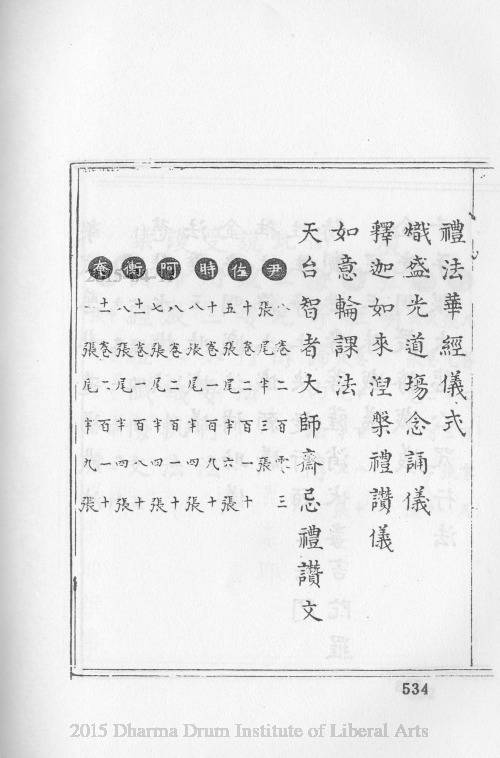 禮法華經儀式
熾盛光道塲念誦儀
釋迦如來涅槃禮讚儀
如意輪課法
天台智者大師齋忌禮讚文
尹 八卷二百零三
張尾半三張
佐 十卷二百一十
五張尾半六張
時 十卷一百九十
八張尾半四張
阿 八卷二百一十
七張尾半四張
衡 十一卷一百八十
八張尾半四張
奄 十一卷二百一十
一張尾半九張
534
2015 Dharma Drum Institute of Liberal Arts